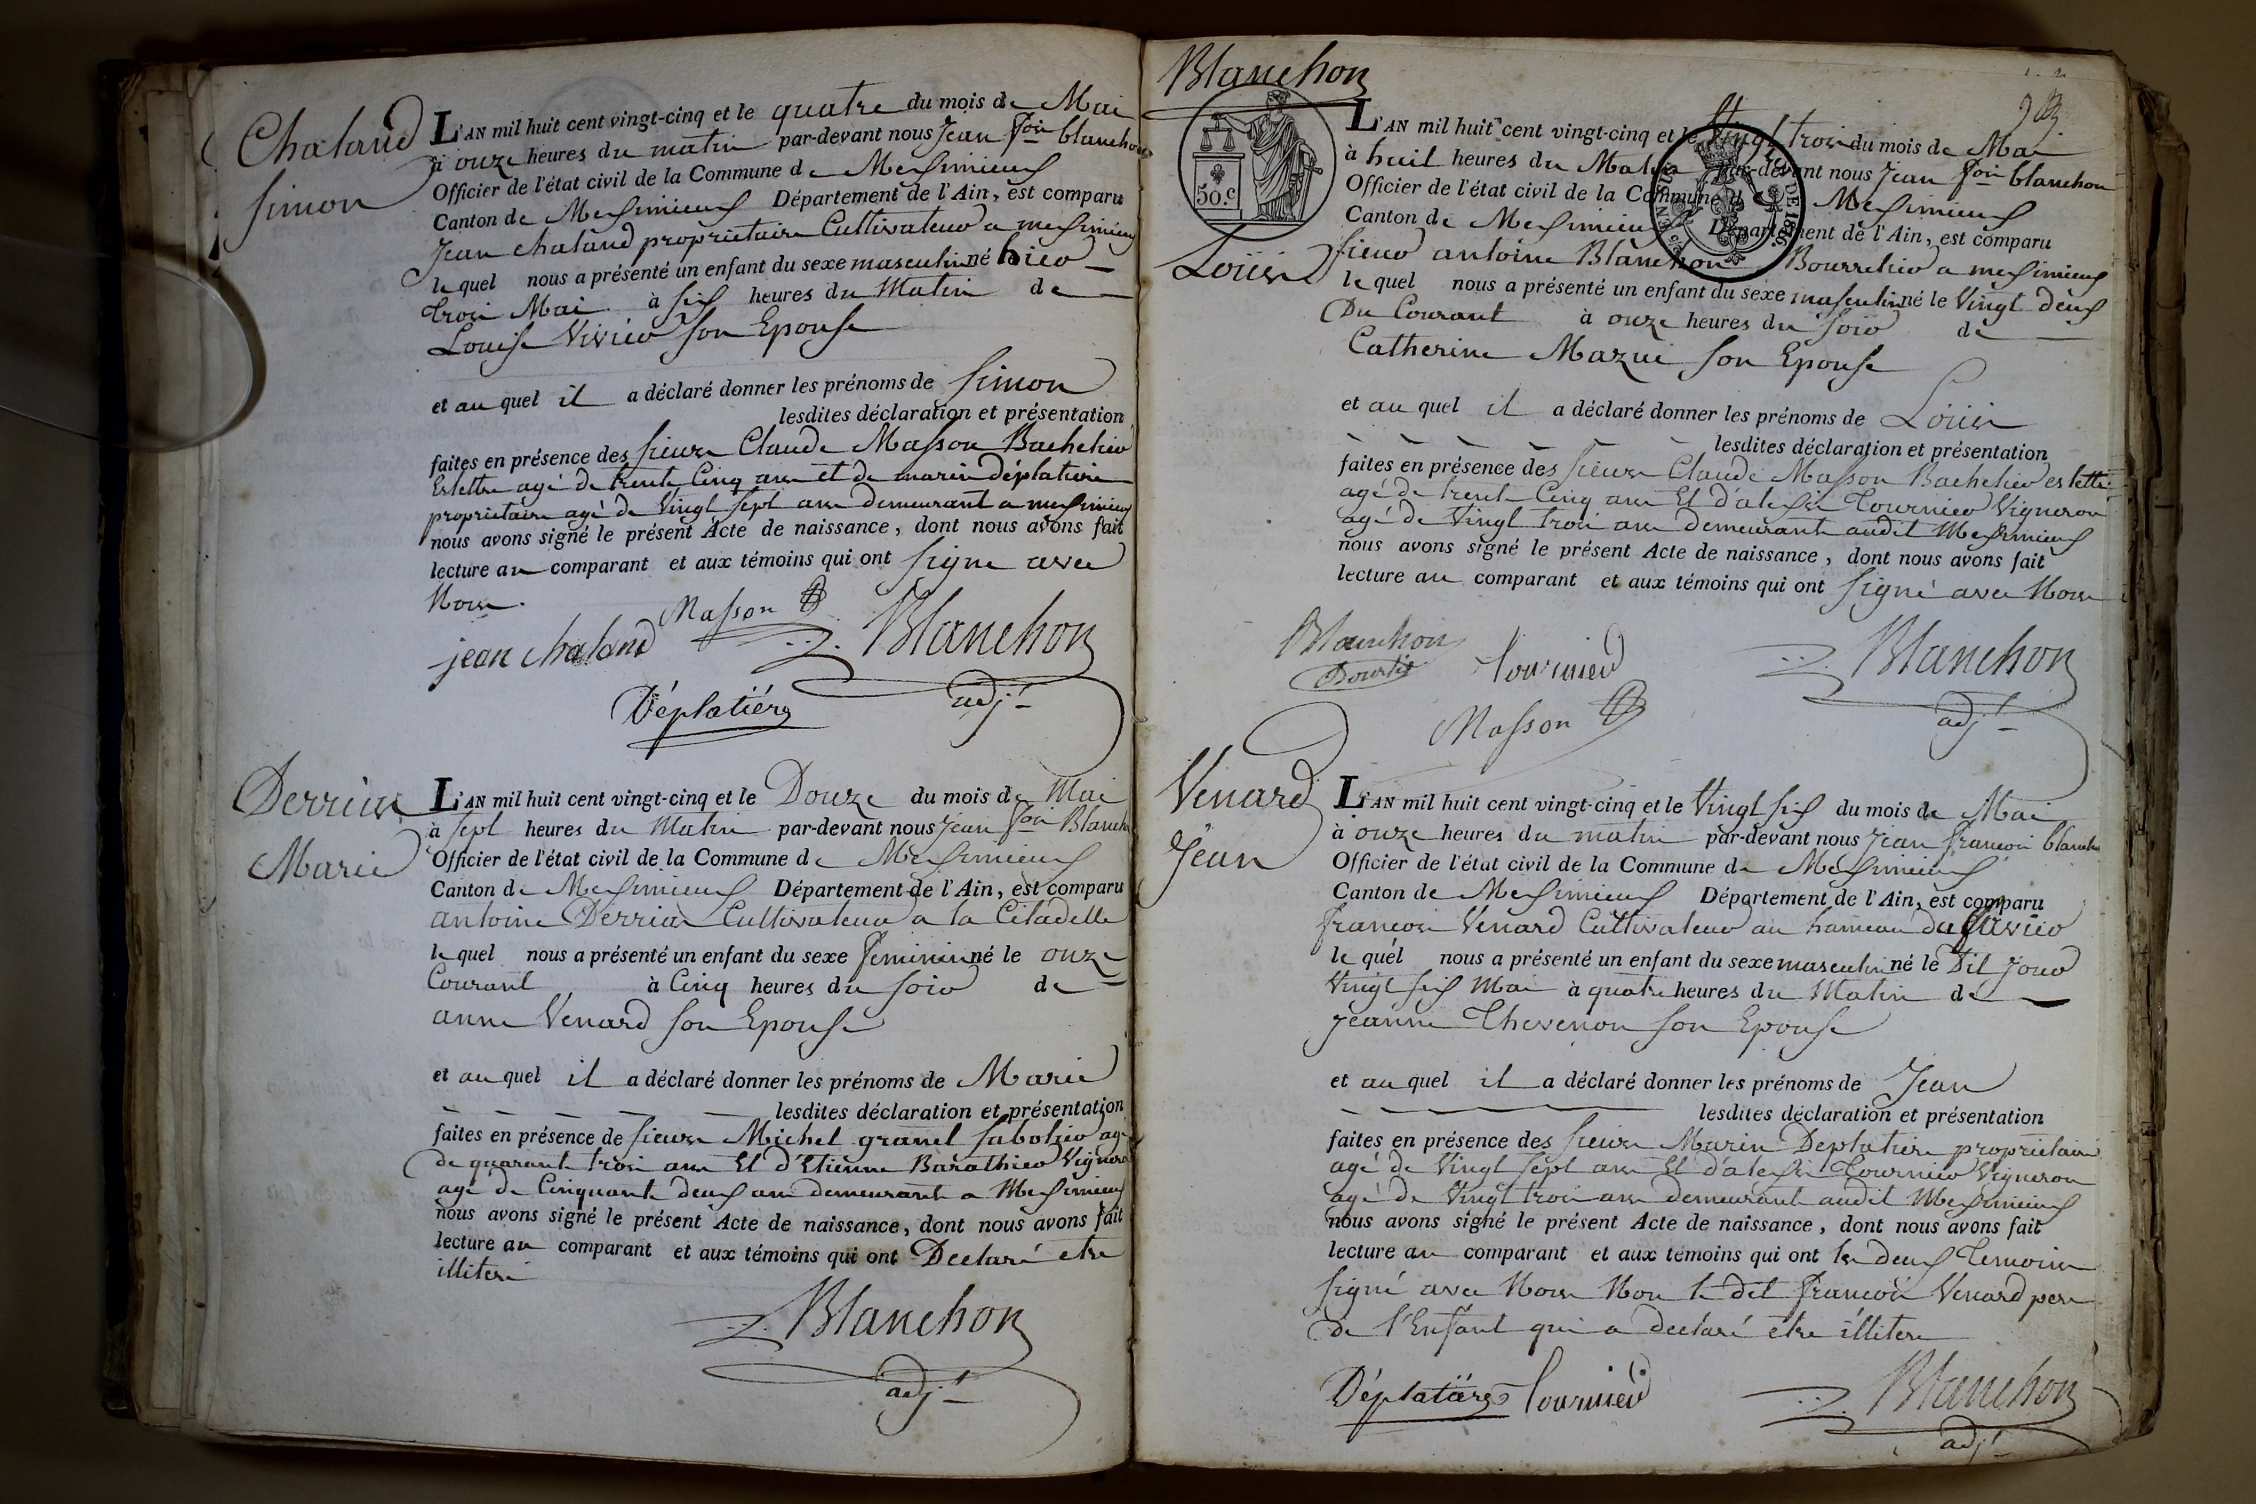 Chaland
Simon
L'AN mil huit cent vingt-cinq et le quatre du mois de Mai
à onze heures du matin par-devant nous Jean fcois blanchon
Officier de l'état civil de la Commune de Messimieux
Canton de Messimieux Département de l'Ain, est comparu
Jean chaland propriétaire Cultivateur a messimieux
le quel nous a présenté un enfant du sexe masculin né hier
trois Mai à six heures du Matin de
Louise Vivier son Epouse
et au quel il a déclaré donner les prénoms de Simon
lesdites déclaration et présentation
faites en présence des sieurs Claude Masson Bachelier
Eslettre agé de trente Cinq ans et de marin déplatiere
propriétaire agé de Vingt sept ans demeurant a messimieux
nous avons signé le présent Acte de naissance, dont nous avons fait
lecture au comparant et aux témoins qui ont signe avec
Nous.
Masson
Blanchon
jean chaland
adjt
Déplatiére
Derrias
Marie
L'AN mil huit cent vingt-cinq et le Douze du mois de Mai
à sept heures du Matin par-devant nous Jean fcois Blanch
Officier de l'état civil de la Commune de Messimieux
Canton de Messimieux Département de l'Ain, est comparu
antoine Derrias Cultivateur a la Citadelle
le quel nous a présenté un enfant du sexe feminin né le onze
Courant à Cinq heures du soir de
anne Venard son Epouse
et au quel il a déclaré donner les prénoms de Marie
lesdites déclaration et présentation
faites en présence de sieurs Michel granel sabotier agé
de quarante trois ans Et d'Etienne Barathier Vigneron
agé de Cinquante deux ans demeurants a Messimieux
nous avons signé le présent Acte de naissance, dont nous avons fait
lecture au comparant et aux témoins qui ont Declaré etre
illiteré
Blanchon
adjt
Blanchon
Loüis
50.c
DE 1816.
L'AN mil huit cent vingt-cinq et le Vingt trois du mois de Mai
à huit heures du Matin par-devant nous Jean fcois blanchon
Officier de l'état civil de la Commune d Messimieux
Canton de Messimieux Département de l'Ain, est comparu
sieur antoine Blanchon Bourrelier a messimieux
le quel nous a présenté un enfant du sexe masculin né le Vingt deux
Du Courant à onze heures du soir de
Catherine Mazui son Epouse
et au quel il a déclaré donner les prénoms de Loüis
lesdites déclaration et présentation
faites en présence des sieurs Claude Masson Bachelier es lettre
agé de trente Cinq ans Et d'alexis Tournier Vigneron
agé de Vingt trois ans demeurant audit Messimieux
nous avons signé le présent Acte de naissance, dont nous avons fait
lecture au comparant et aux témoins qui ont signé avec Nous
Blanchon
Tournier
Blanchon
adjt
Masson
Venard
Jean
L'AN mil huit cent vingt-cinq et le Vingt six du mois de Mai
à onze heures du matin par-devant nous Jean francois blanchon
Officier de l'état civil de la Commune de Messimieux
Canton de Messimieux Département de l'Ain, est comparu
francois Venard Cultivateur au hameau du
le quel nous a présenté un enfant du sexe masculin né le Dit Jour
Vingt six Mai à quatre heures du Matin de
Jeanne Thevenon son Epouse
et au quel il a déclaré donner les prénoms de Jean
lesdites déclaration et présentation
faites en présence des sieurs Marin Deplatiere propriétaire
agé de Vingt sept ans Et d'alexis Tournier Vigneron
agé de Vingt trois ans demeurant audit Messimieux
nous avons signé le présent Acte de naissance, dont nous avons fait
lecture au comparant et aux témoins qui ont les deux Temoins
signé avec Nous Non le dit francois Venard pere
de l'Enfant qui a declaré étre illitere
Déplatiére
Tournier
Blanchon
adjt